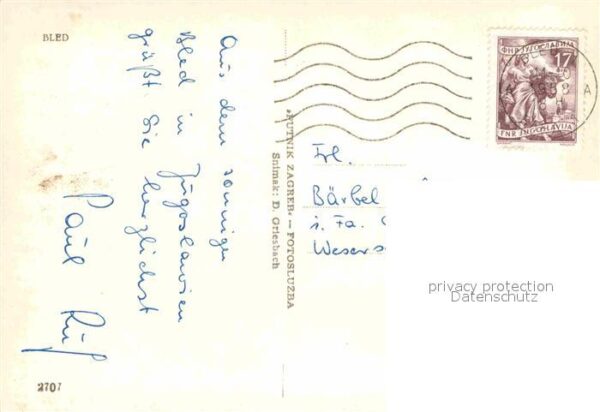 BLED
Aus dem sonnigen
Bled in Jugoslawien
grüßt Sie herzlichst
Paul
2707
»PUTNIK ZAGREB« — FOTOSLUŽBA
Snimak: D. Griesbach
ФНР ЈУГОСЛАВИЈА
17
FNR JUGOSLAVIJA
Frl.
Bärbel
i. Fa.
privacy protection
Datenschutz